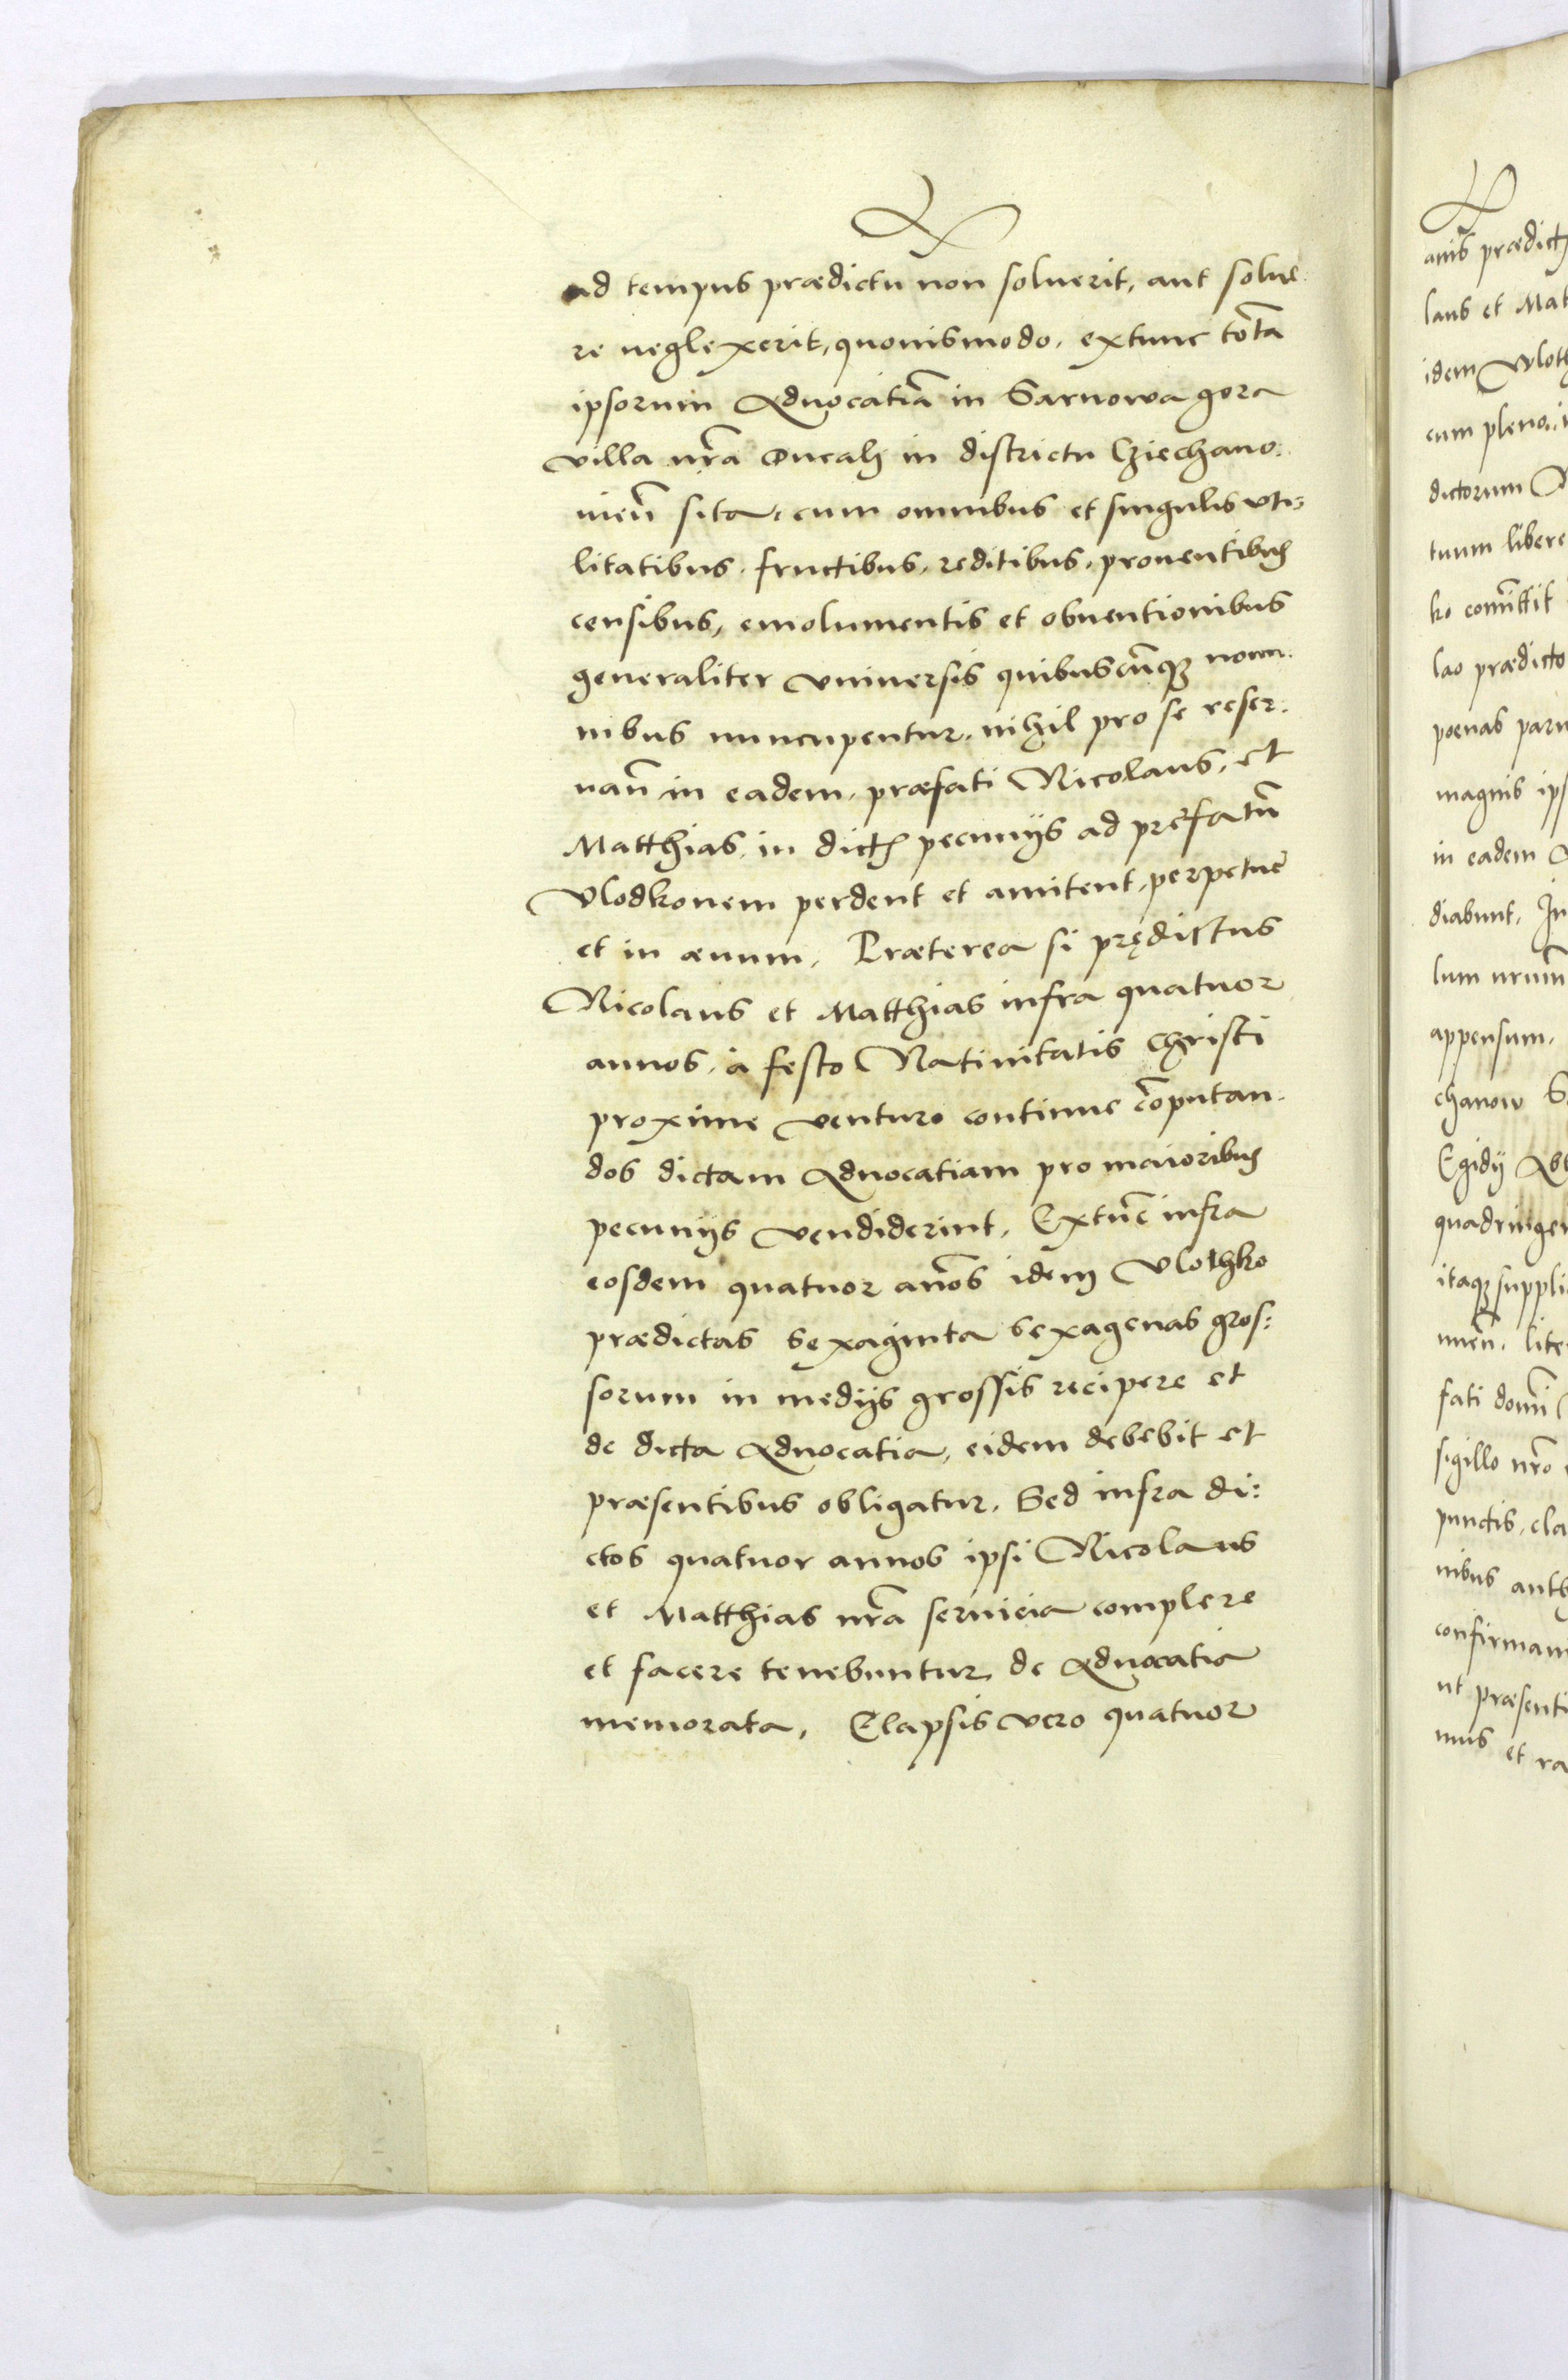 ad tempus prædictu non soluerit, aut solue
re neglexerit, quouismodo, extunc tõta
ipsorum Aduocatiã in Sarnowa gora
villa nrã Ducali in districtu Cziechano:
uieñ sita, cum omnibus et singulis vti:
litatibus, fructibus, reditibus, prouentibus
censibus, emolumentis et obuentionibus
generaliter vniuersis quibuscũq3 nomi:
nibus nuncupentur, nihil pro se reser:
uañ in eadem, præfati Nicolaus, et
Matthias, in dictis pecunijs ad prefatũ
Vlodkonem perdent et amitent, perpetue
et in æuum. Præterea si prędictus
Nicolaus et Matthias infra quatuor
annos, à festo Natiuitatis Christi
proxime venturo continue cõputan:
dos dictam Aduocatiam pro maioribus
pecunijs vendiderint, Extũc infra
eosdem quatuor anõs idem Vlothko
prædictas Sexaginta sexagenas gros:
sorum in medijs grossis recipere et
de dicta Aduocatia, eidem debebit et
præsentibus obligatur, Sed infra di:
ctos quatuor annos ipsi Nicolaus
et Matthias nrã seruicia complere
et facere tenebuntur de Aduocatia
memorata, Elapsis vero quatuor
anis prædict
laus et Mat
idem Vloth
cum pleno
dictorum
tuum libere
ko comittit
lao prædicto
poenas paru
magnis ips
in eadem
diabunt. In
lum nrum
appensum.
chanow S
Egidij Ab
quadringen
itaq3 suppli
uieñ. lite
fati domi
sigillo nro
punctis, cla
nibus aut
confirmam
ut præsenti
mus et ra